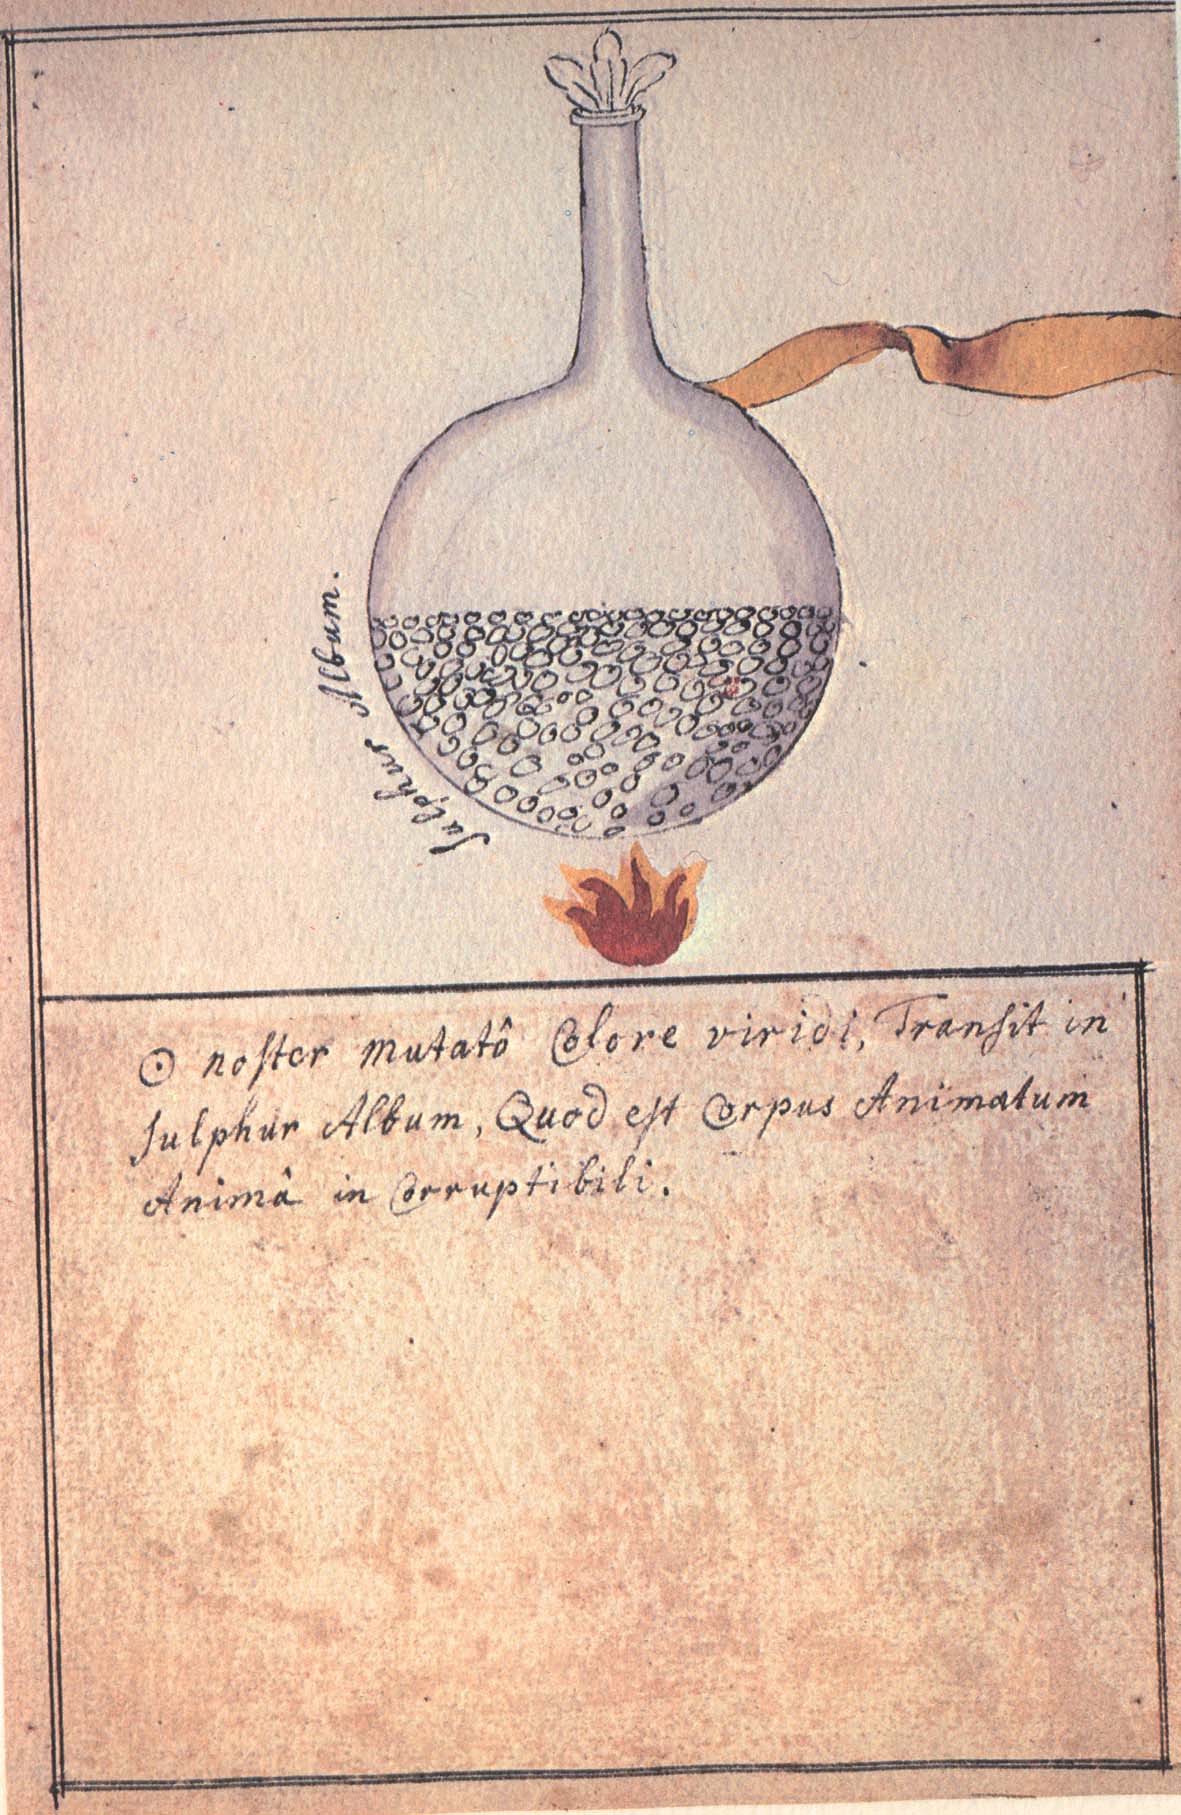 Sulphur Album.
☉ noſter mutatô Colore viridi, Tranſit in
Sulphur Album, Quod eſt Corpus Animatum
Animâ in Corruptibili.